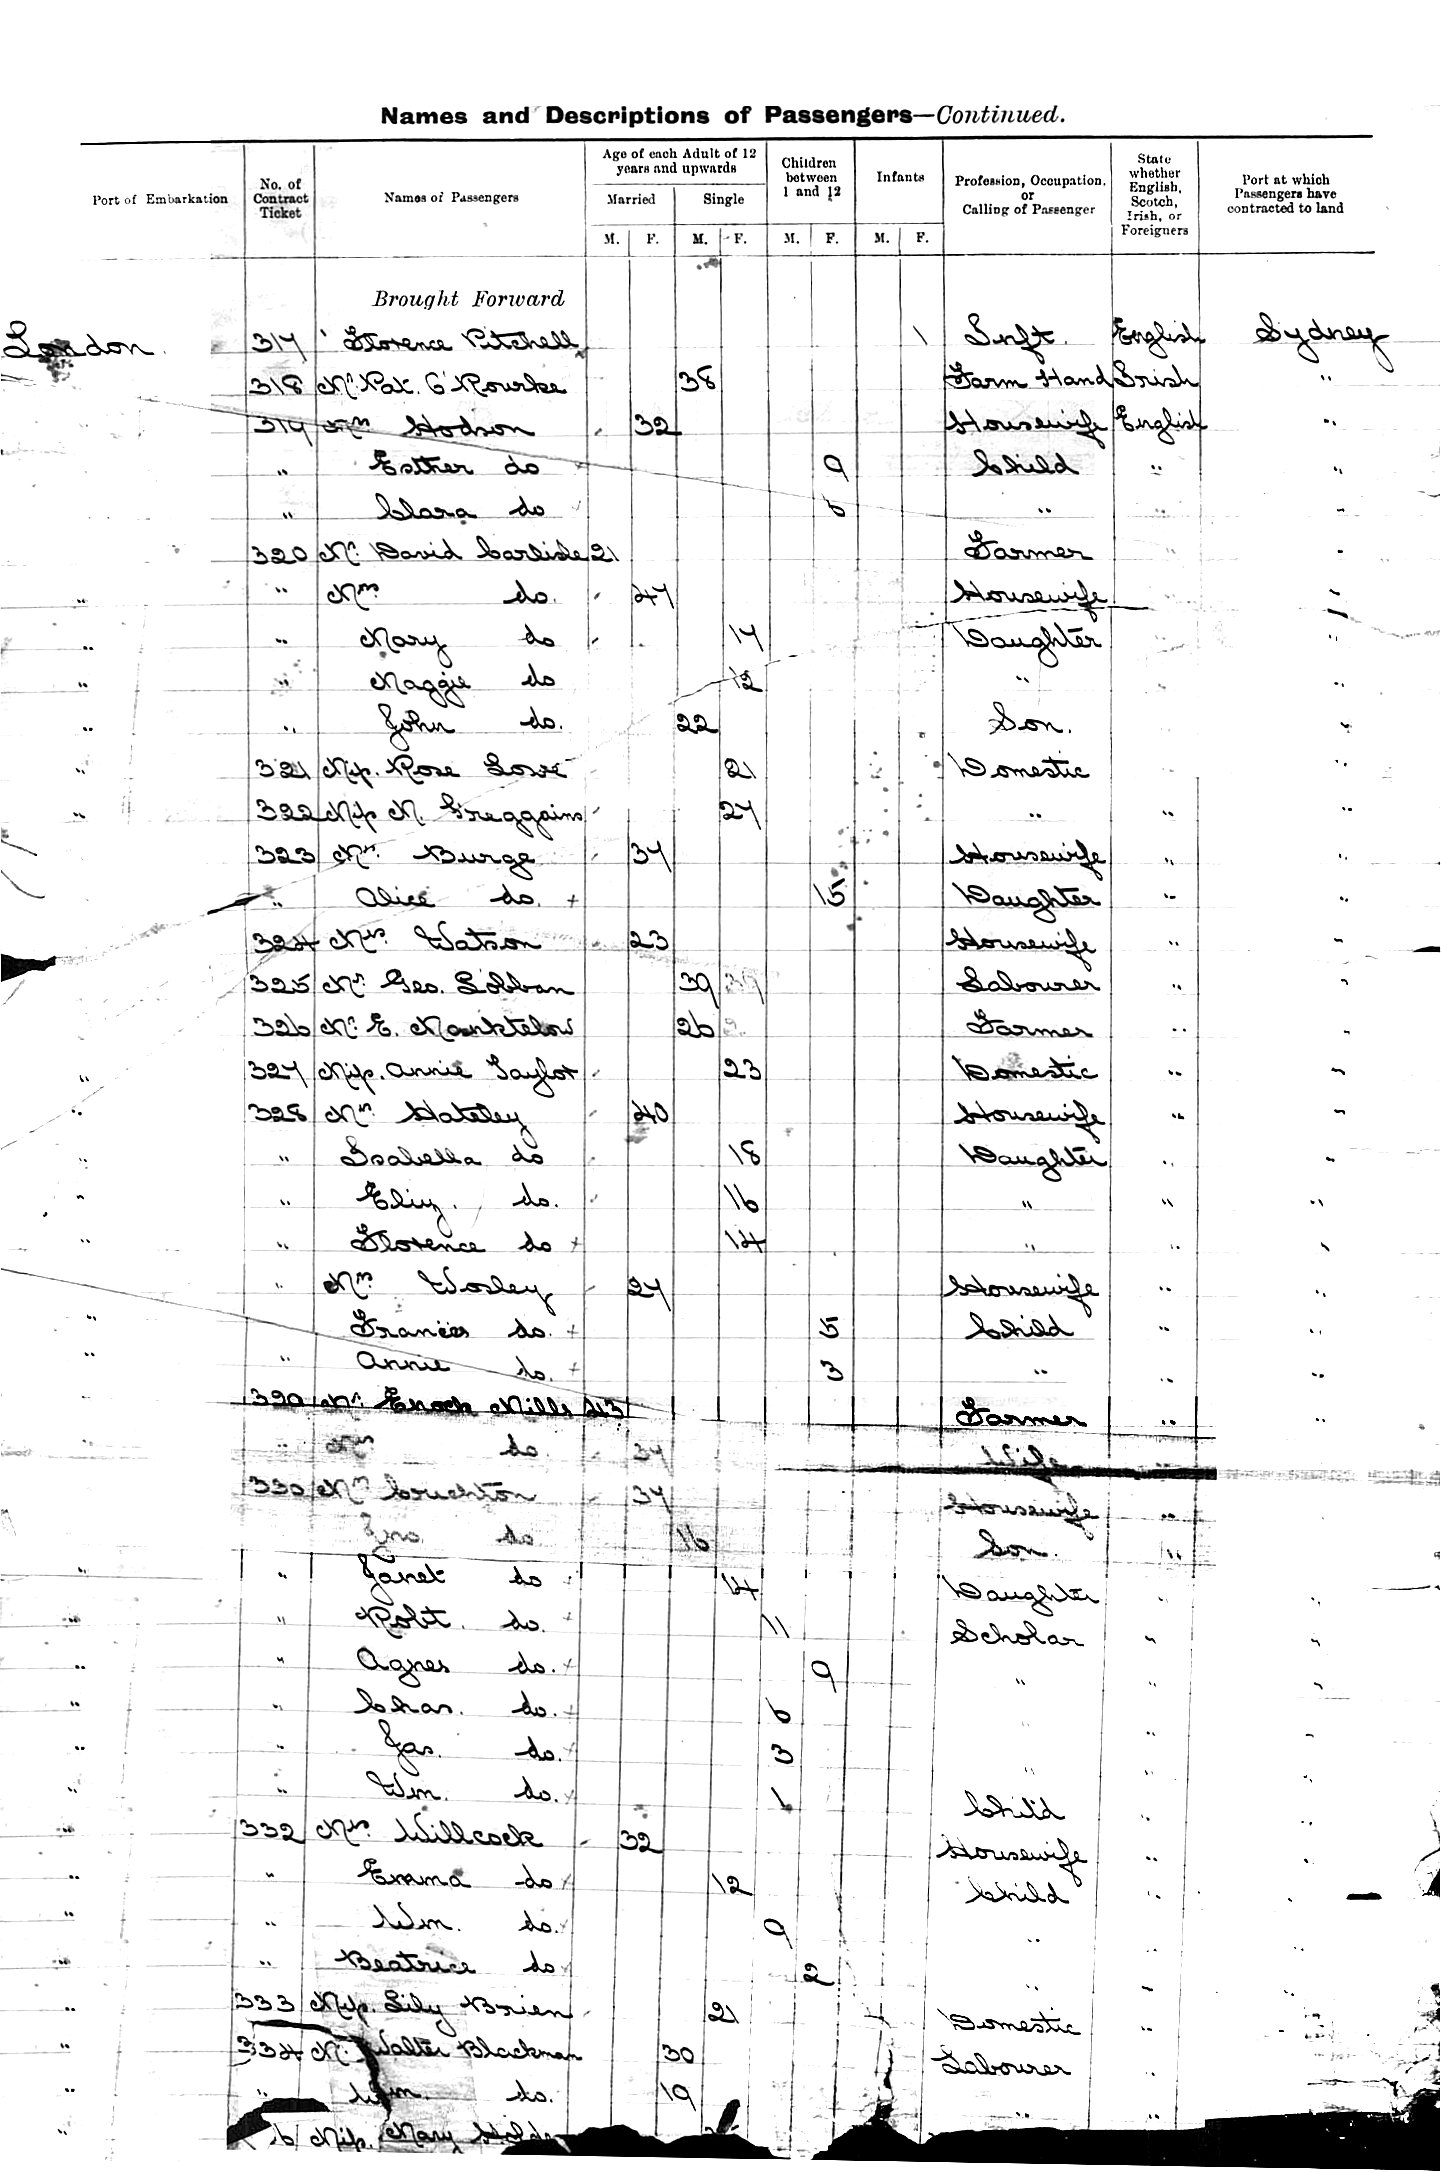 Names and Descriptions of Passengers—Continued.
Port of Embarkation | No. of Contract Ticket | Names of Passengers | Age of each Adult of 12 years and upwards | Children between 1 and 12 | Infants | Profession, Occupation, or Calling of Passenger | State whether English, Scotch, Irish, or Foreigners | Port at which Passengers have contracted to land
Married | Single
M. | F. | M. | F. | M. | F. | M. | F.
Brought Forward
London. 317 Florence Pitchell 1 Inft. English Sydney
318 Mr. Pat. O'Rourke 38 Farm Hand Irish "
319 Mrs Hodson 32 Housewife English "
" Esther do 9 Child " "
" Clara do 6 " " "
320 Mr. David Carlisle 21 Farmer "
" " Mrs do. 47 Housewife "
" " Mary do 17 Daughter " "
" " Maggie do 12 " " "
" " John do. 22 Son. "
" 321 Miss. Rose Lowe 21 Domestic "
" 322 Miss M. Greggains 27 " " "
323 Mrs. Burge 37 Housewife " "
" Alice do. + 15 Daughter " "
324 Mrs. Watson 23 Housewife " "
325 Mr. Geo. Lobban 39 Labourer " "
326 Mr. E. Manktelow 26 Farmer " "
" 327 Miss. Annie Taylor 23 Domestic " "
" 328 Mrs. Hateley 40 Housewife " "
" " Isabella do 18 Daughter " "
" " Eliz. do. 16 " " "
" " Florence do + 14 " " "
" Mrs. Wosley 27 Housewife " "
" Frances do. + 5 Child " "
" " Annie do. + 3 " " "
Mr. Enoch Mills 43 Farmer " "
" Mrs do. 37 Wife "
330 Mrs Cruchton 37 Housewife "
Jno. do 16 Son. "
" " Janet do 14 Daughter " "
" " Robt. do. + 11 Scholar " "
" " Agnes do. + 9 " " "
" " Chas. do. + 6 " " "
" " Jas. do. + 3 " " "
" " Wm. do. + Child " "
" 332 Mrs. Willcock 32 Housewife " "
" " Emma do + 12 Child "
" " Wm. do. + 9 " " "
" " Beatrice do + 2 " " "
" 333 Miss. Lily Brien 21 Domestic " "
" 334 Mr. Walter Blackman 30 Labourer " "
" " Wm. do. 19 " "
" 6 Miss. Mary